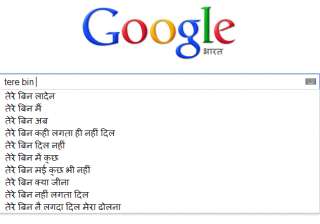 Google
भारत
tere bin
तेरे बिन लादेन
तेरे बिन मैं
तेरे बिन अब
तेरे बिन कही लगता ही नहीं दिल
तेरे बिन दिल नहीं
तेरे बिन में कुछ
तेरे बिन मई कुछ भी नहीं
तेरे बिन क्या जीना
तेरे बिन नहीं लगता दिल
तेरे बिन नै लगदा दिल मेरा ढोलना